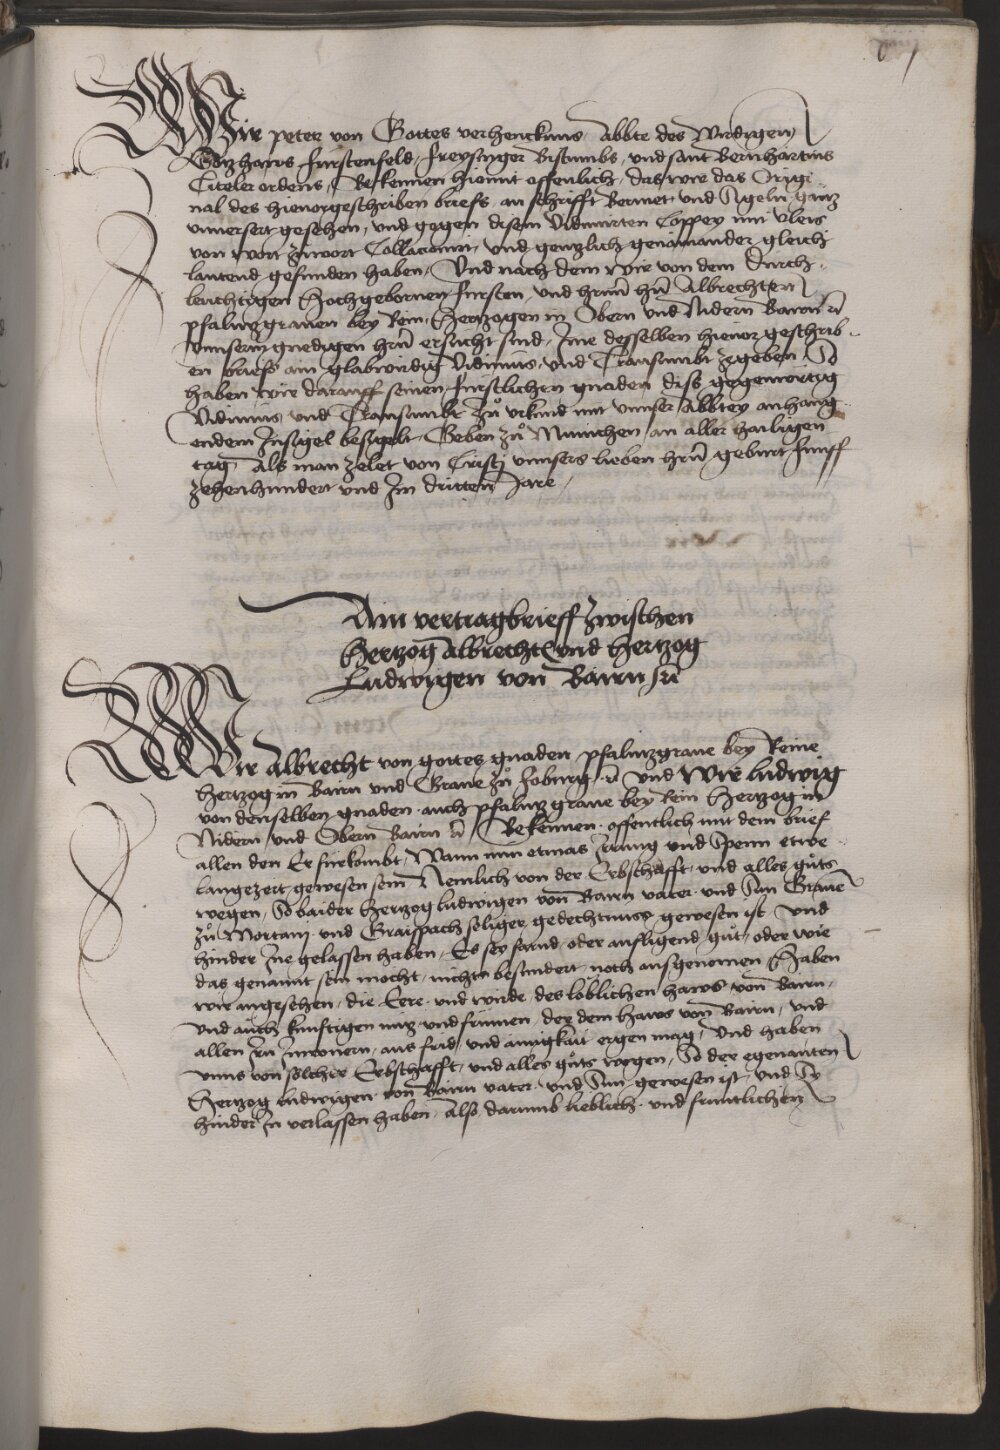 Wir peter von Gottes verhencknus, Abbte des Wirdigen
Gotzhaws Fürstenfeld, Freysinger Bistumbs, und sant Bernhartins
Citeler ordens, Bekennen hiemit offenlich, das wir das Origi-
nal des hievorgeschriben briefs, an schrifft Berment und Sigeln gantz
unversert gesehen, und gegen disem Vidimirten Coppey mit vleis
von wort zu wort Collacionirt, und gentzlich genainander gleich
lautend gefunden haben, Und nach dem wir von dem Durch-
leuchtigen Hochgebornen Fürsten und hrñ hñ Albrechten
pfaltzgraven bey Rein, Hertzogen in Obern und Nidern Bairn rc
unnserm gnedigen hrñ ersucht sind, Ime desselben hievor geschrib-
en briefs ain glabwirdig Vidimus, und Transumbt zegeben, So
haben wir darauff seinen Fürstlichen gnaden diss gegenwirtig
Vidimus und Transumbt zů urkund mit unnser Abbtey anhang-
endem Insigel besigelt, Geben zů Munchen an aller hailigen
tag, Als man zelet von Cristj unnsers lieben hrñ geburt funff
zehenhundert und Im dritten Jare,
Ain vertragbrieff zwischen
Hertzog Albrecht und Hertzog
Ludwigen von Bairn rc
Wir Albrecht von gottes gnaden pfaltzgrave bey Reine
Hertzog in Bairn und Grave zů Voburg rc und Wir Ludwig
von denselben gnaden auch pfaltzgrave bey Rein Hertzog in
Nidern und Obern Bairn rc Bekennen offentlich mit dem brief
allen den Er fürkombt, Wann nun etwas Irrung und Spenn etwe
langezeit gewesen sein Nemlich von der Erbschafft und alles gůts
wegen, So baider Hertzog Ludwigen von Bairn vater und Sun Grave
zů Mortani und Graispach säliger gedechtnuss gewesen ist und
hinder Ine gelassen haben, Es sey farnd oder aufligend gůt, oder wie
das genannt sein mocht, nichts besundert noch ausgenomen Haben
wir angesehen, die Eere und wirde des loblichen haws von Bairn,
und auch künftigen nutz und frumen der dem Haws von Bairn, und
allen Irn Inwonern, aus frid und ainigkait ergen mag, Und haben
unns von solcher Erbschafft, und alles gůts wegen, So der egenanten
Hertzog Ludwigen von Bairn vater und Sun gewesen ist und Sy
hinder In verlassen haben, Also darumb lieblich und frùntlichen